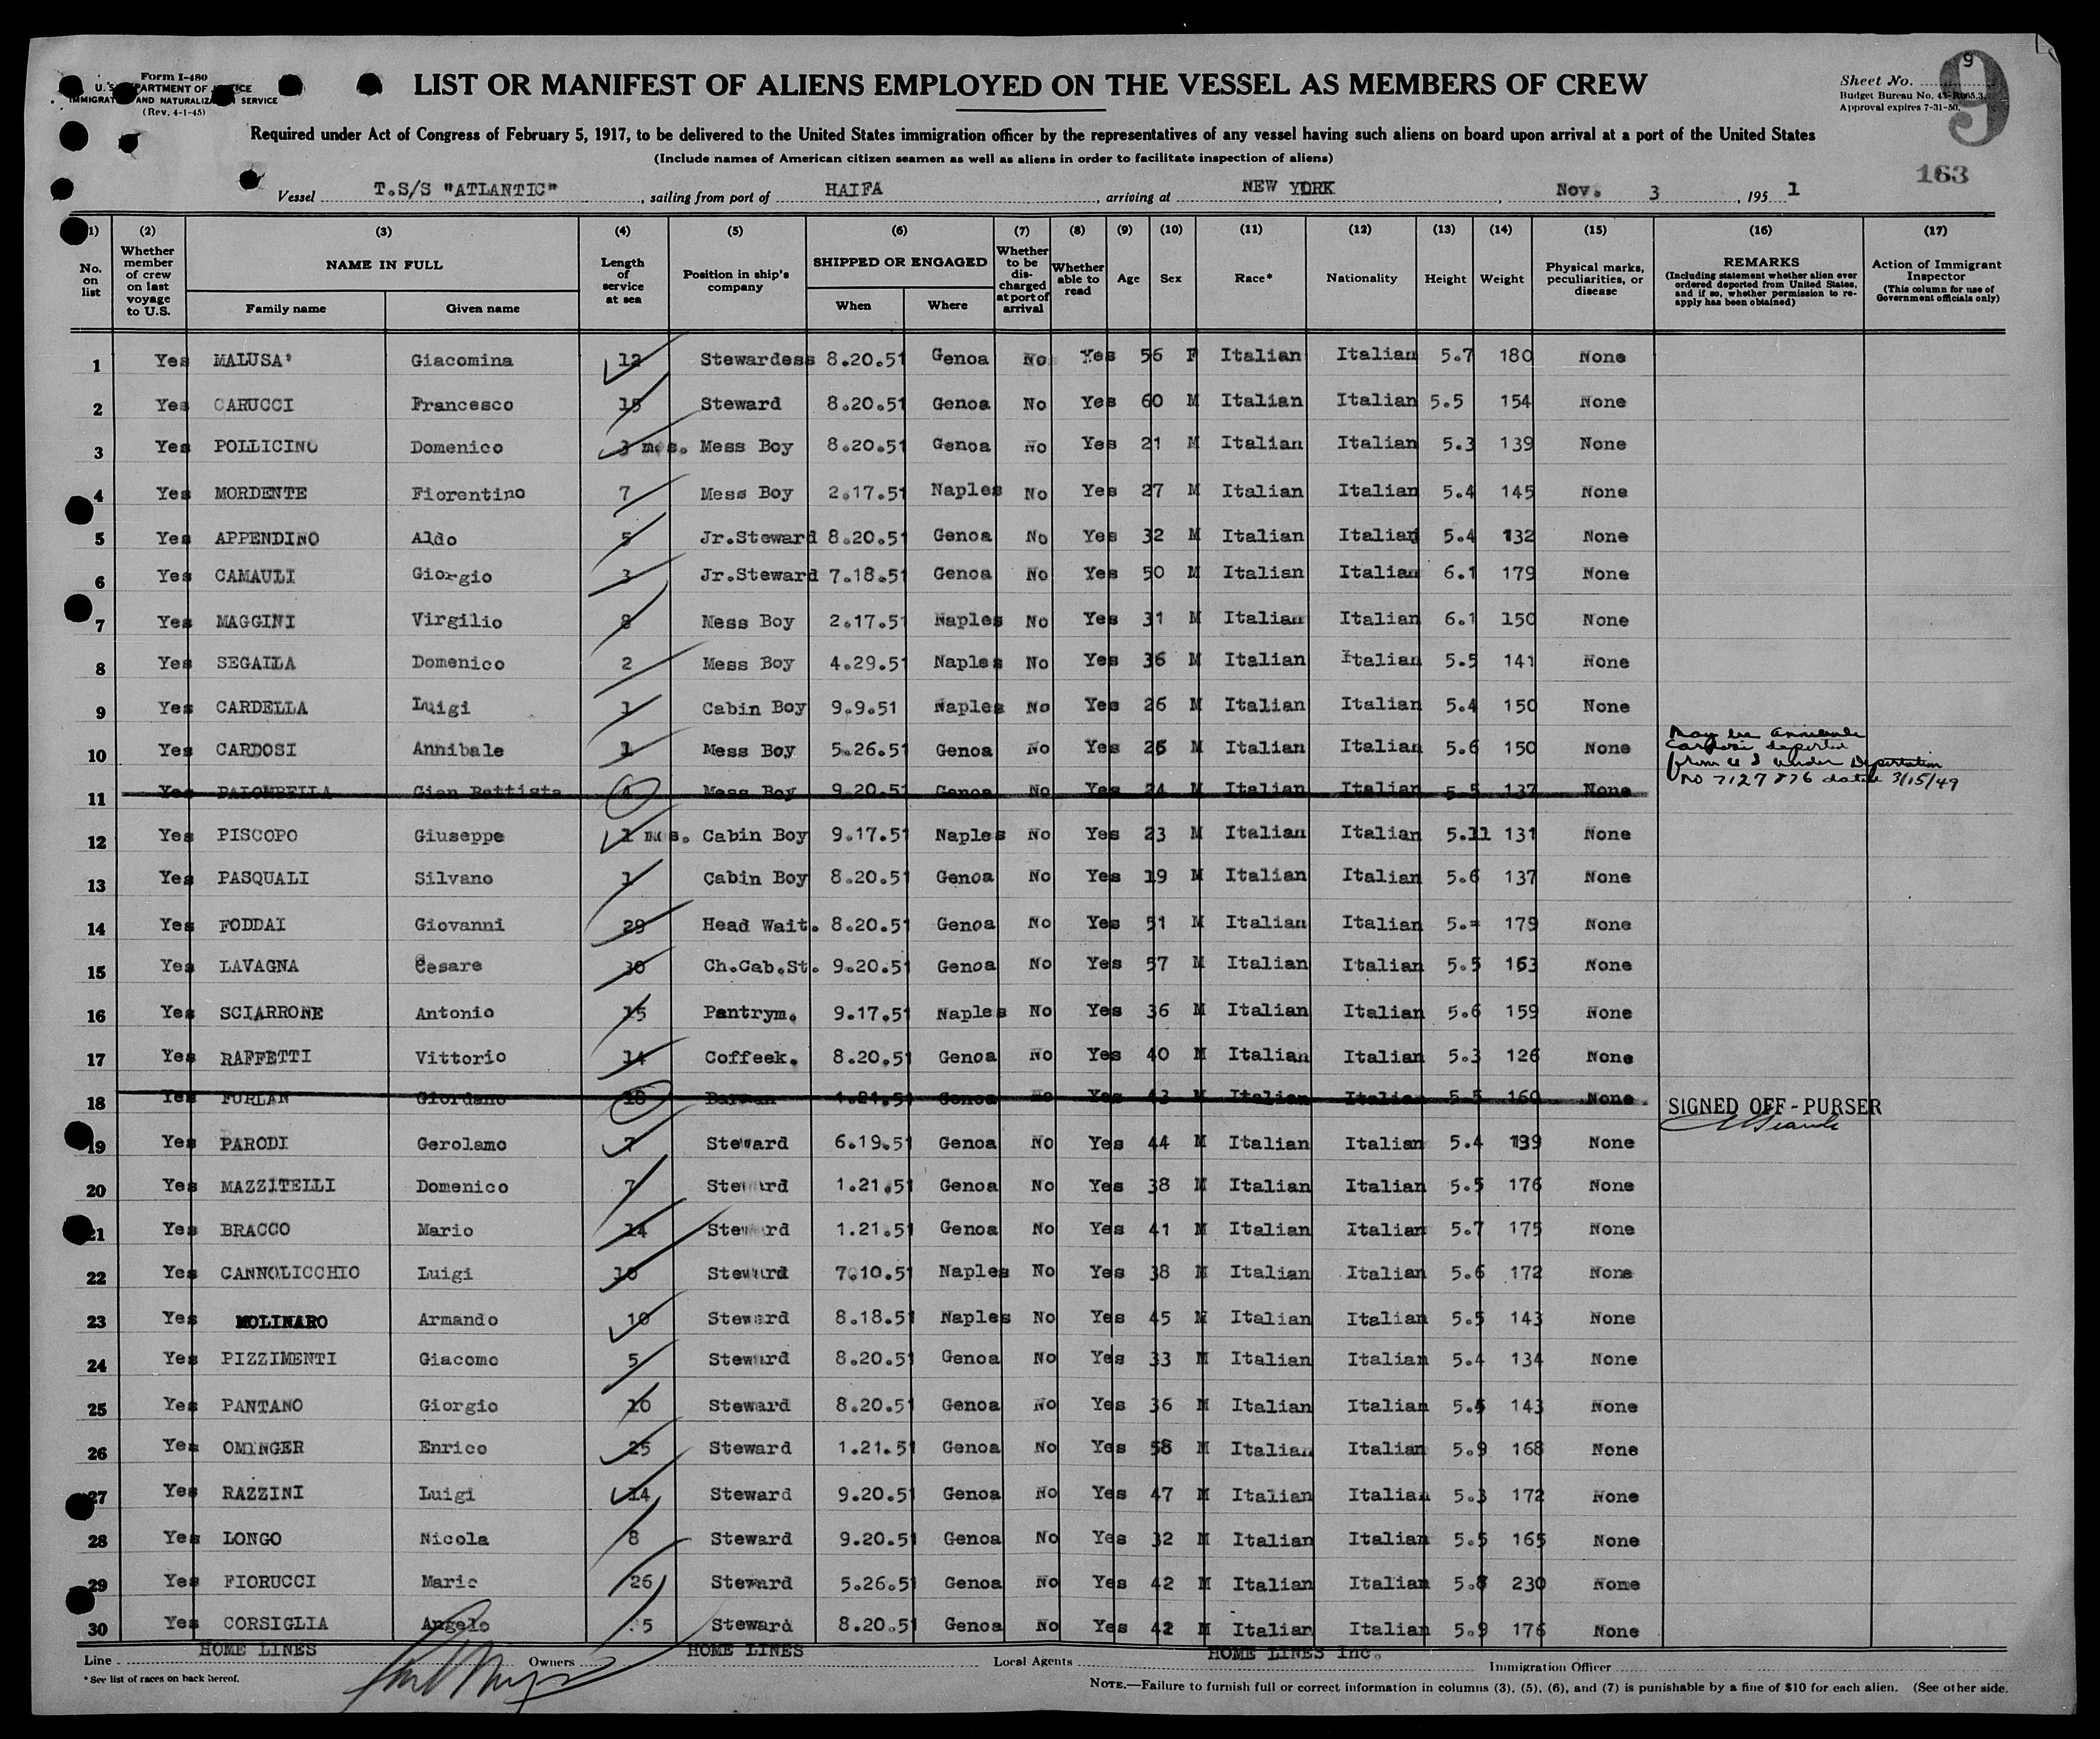 Form I-480
U. S. DEPARTMENT OF JUSTICE
IMMIGRATION AND NATURALIZATION SERVICE
(Rev. 4-1-45)
LIST OR MANIFEST OF ALIENS EMPLOYED ON THE VESSEL AS MEMBERS OF CREW
Sheet No. 9
Budget Bureau No. 43-R065.3.
Approval expires 7-31-50.
9
163
Required under Act of Congress of February 5, 1917, to be delivered to the United States immigration officer by the representatives of any vessel having such aliens on board upon arrival at a port of the United States
(Include names of American citizen seamen as well as aliens in order to facilitate inspection of aliens)
Vessel T.S/S "ATLANTIC", sailing from port of HAIFA, arriving at NEW YORK, Nov. 3, 1951
(1) (2) (3) (4) (5) (6) (7) (8) (9) (10) (11) (12) (13) (14) (15) (16) (17)
No. on list
Whether member of crew on last voyage to U.S.
NAME IN FULL
Family name
Given name
Length of service at sea
Position in ship's company
SHIPPED OR ENGAGED
When
Where
Whether to be discharged at port of arrival
Whether able to read
Age
Sex
Race*
Nationality
Height
Weight
Physical marks, peculiarities, or disease
REMARKS
(Including statement whether alien ever ordered deported from United States, and if so, whether permission to re-apply has been obtained)
Action of Immigrant Inspector
(This column for use of Government officials only)
1 Yes MALUSA' Giacomina 12 Stewardess 8.20.51 Genoa No Yes 56 F Italian Italian 5.7 180 None
2 Yes CARUCCI Francesco 15 Steward 8.20.51 Genoa No Yes 60 M Italian Italian 5.5 154 None
3 Yes POLLICINO Domenico 3 mos. Mess Boy 8.20.51 Genoa No Yes 21 M Italian Italian 5.3 139 None
4 Yes MORDENTE Fiorentino 7 Mess Boy 2.17.51 Naples No Yes 27 M Italian Italian 5.4 145 None
5 Yes APPENDINO Aldo 5 Jr.Steward 8.20.51 Genoa No Yes 32 M Italian Italian 5.4 132 None
6 Yes CAMAULI Giorgio 3 Jr.Steward 7.18.51 Genoa No Yes 50 M Italian Italian 6.1 179 None
7 Yes MAGGINI Virgilio 8 Mess Boy 2.17.51 Naples No Yes 31 M Italian Italian 6.1 150 None
8 Yes SEGAILA Domenico 2 Mess Boy 4.29.51 Naples No Yes 36 M Italian Italian 5.5 141 None
9 Yes CARDELLA Luigi 1 Cabin Boy 9.9.51 Naples No Yes 26 M Italian Italian 5.4 150 None
10 Yes CARDOSI Annibale 1 Mess Boy 5.26.51 Genoa No Yes 26 M Italian Italian 5.6 150 None
May be Annibale
Cardosi deported
from U S under Deportation
No 7127876 dated 3/15/49
11 Yes PALOMBELLA Gian Battista 4 Mess Boy 9.20.51 Genoa No Yes 24 M Italian Italian 5.5 137 None
12 Yes PISCOPO Giuseppe 1 mos. Cabin Boy 9.17.51 Naples No Yes 23 M Italian Italian 5.11 131 None
13 Yes PASQUALI Silvano 1 Cabin Boy 8.20.51 Genoa No Yes 19 M Italian Italian 5.6 137 None
14 Yes FODDAI Giovanni 29 Head Wait. 8.20.51 Genoa No Yes 51 M Italian Italian 5.= 179 None
15 Yes LAVAGNA Cesare 30 Ch.Cab.St. 9.20.51 Genoa No Yes 57 M Italian Italian 5.5 163 None
16 Yes SCIARRONE Antonio 15 Pantrym. 9.17.51 Naples No Yes 36 M Italian Italian 5.6 159 None
17 Yes RAFFETTI Vittorio 14 Coffeek. 8.20.51 Genoa No Yes 40 M Italian Italian 5.3 126 None
18 Yes FURLAN Giordano 18 Barman 1.21.51 Genoa No Yes 43 M Italian Italian 5.5 160 None SIGNED OFF - PURSER
19 Yes PARODI Gerolamo 7 Steward 6.19.51 Genoa No Yes 44 M Italian Italian 5.4 139 None
20 Yes MAZZITELLI Domenico 7 Steward 1.21.51 Genoa No Yes 38 M Italian Italian 5.5 176 None
21 Yes BRACCO Mario 14 Steward 1.21.51 Genoa No Yes 41 M Italian Italian 5.7 175 None
22 Yes CANNOLICCHIO Luigi 10 Steward 7.10.51 Naples No Yes 38 M Italian Italian 5.6 172 None
23 Yes MOLINARO Armando 10 Steward 8.18.51 Naples No Yes 45 M Italian Italian 5.5 143 None
24 Yes PIZZIMENTI Giacomo 5 Steward 8.20.51 Genoa No Yes 33 M Italian Italian 5.4 134 None
25 Yes PANTANO Giorgio 10 Steward 8.20.51 Genoa No Yes 36 M Italian Italian 5.5 143 None
26 Yes OMINGER Enrico 25 Steward 1.21.51 Genoa No Yes 58 M Italian Italian 5.9 168 None
27 Yes RAZZINI Luigi 14 Steward 9.20.51 Genoa No Yes 47 M Italian Italian 5.3 172 None
28 Yes LONGO Nicola 8 Steward 9.20.51 Genoa No Yes 32 M Italian Italian 5.5 165 None
29 Yes FIORUCCI Mario 26 Steward 5.26.51 Genoa No Yes 42 M Italian Italian 5.8 230 None
30 Yes CORSIGLIA Angelo 5 Steward 8.20.51 Genoa No Yes 42 M Italian Italian 5.9 176 None
Line HOME LINES Owners HOME LINES Local Agents HOME LINES Inc. Immigration Officer
* See list of races on back hereof.
NOTE.—Failure to furnish full or correct information in columns (3), (5), (6), and (7) is punishable by a fine of $10 for each alien. (See other side.